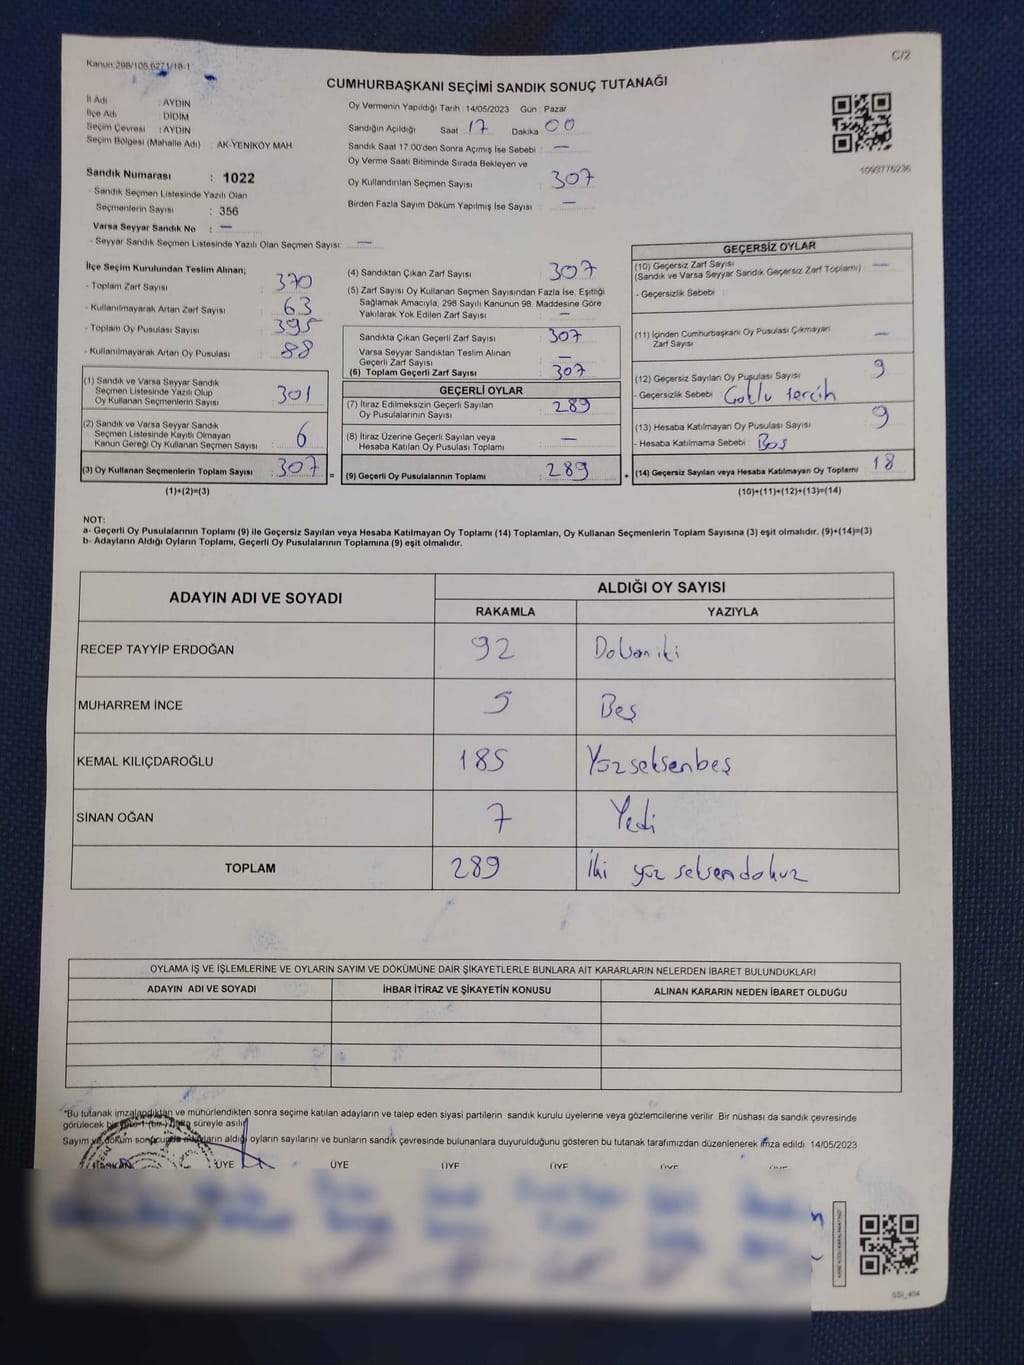 Kanun:298/105,6271/18-1
C/2
CUMHURBAŞKANI SEÇİMİ SANDIK SONUÇ TUTANAĞI
İl Adı : AYDIN
İlçe Adı : DİDİM
Seçim Çevresi : AYDIN
Seçim Bölgesi (Mahalle Adı) : AK-YENİKÖY MAH.
Sandık Numarası : 1022
- Sandık Seçmen Listesinde Yazılı Olan
Seçmenlerin Sayısı : 356
Varsa Seyyar Sandık No : —
- Seyyar Sandık Seçmen Listesinde Yazılı Olan Seçmen Sayısı: —
Oy Vermenin Yapıldığı Tarih :14/05/2023 Gün : Pazar
Sandığın Açıldığı Saat 17 Dakika 00
Sandık Saat 17:00'den Sonra Açımış İse Sebebi : —
Oy Verme Saati Bitiminde Sırada Bekleyen ve
Oy Kullandırılan Seçmen Sayısı : 307
Birden Fazla Sayım Döküm Yapılmış İse Sayısı : —
1093776236
İlçe Seçim Kurulundan Teslim Alınan;
- Toplam Zarf Sayısı : 370
- Kullanılmayarak Artan Zarf Sayısı : 63
- Toplam Oy Pusulası Sayısı : 395
- Kullanılmayarak Artan Oy Pusulası : 88
(1) Sandık ve Varsa Seyyar Sandık
Seçmen Listesinde Yazılı Olup
Oy Kullanan Seçmenlerin Sayısı : 301
(2) Sandık ve Varsa Seyyar Sandık
Seçmen Listesinde Kayıtlı Olmayan
Kanun Gereği Oy Kullanan Seçmen Sayısı : 6
(3) Oy Kullanan Seçmenlerin Toplam Sayısı : 307 =
(1)+(2)=(3)
(4) Sandıktan Çıkan Zarf Sayısı : 307
(5) Zarf Sayısı Oy Kullanan Seçmen Sayısından Fazla İse, Eşitliği
Sağlamak Amacıyla, 298 Sayılı Kanunun 98. Maddesine Göre
Yakılarak Yok Edilen Zarf Sayısı : —
Sandıkta Çıkan Geçerli Zarf Sayısı : 307
Varsa Seyyar Sandıktan Teslim Alınan
Geçerli Zarf Sayısı : —
(6) Toplam Geçerli Zarf Sayısı : 307
GEÇERLİ OYLAR
(7) İtiraz Edilmeksizin Geçerli Sayılan
Oy Pusulalarının Sayısı : 289
(8) İtiraz Üzerine Geçerli Sayılan veya
Hesaba Katılan Oy Pusulası Toplamı : —
(9) Geçerli Oy Pusulalarının Toplamı : 289 +
GEÇERSİZ OYLAR
(10) Geçersiz Zarf Sayısı : —
(Sandık ve Varsa Seyyar Sandık Geçersiz Zarf Toplamı)
- Geçersizlik Sebebi :
(11) İçinden Cumhurbaşkanı Oy Pusulası Çıkmayan
Zarf Sayısı : —
(12) Geçersiz Sayılan Oy Pusulası Sayısı : 9
- Geçersizlik Sebebi : Çoklu tercih
(13) Hesaba Katılmayan Oy Pusulası Sayısı : 9
- Hesaba Katılmama Sebebi : Boş
(14) Geçersiz Sayılan veya Hesaba Katılmayan Oy Toplamı : 18
(10)+(11)+(12)+(13)=(14)
NOT:
a- Geçerli Oy Pusulalarının Toplamı (9) ile Geçersiz Sayılan veya Hesaba Katılmayan Oy Toplamı (14) Toplamları, Oy Kullanan Seçmenlerin Toplam Sayısına (3) eşit olmalıdır. (9)+(14)=(3)
b- Adayların Aldığı Oyların Toplamı, Geçerli Oy Pusulalarının Toplamına (9) eşit olmalıdır.
ADAYIN ADI VE SOYADI
ALDIĞI OY SAYISI
RAKAMLA YAZIYLA
RECEP TAYYİP ERDOĞAN 92 Doksan iki
MUHARREM İNCE 5 Beş
KEMAL KILIÇDAROĞLU 185 Yüzseksenbeş
SİNAN OĞAN 7 Yedi
TOPLAM 289 İki yüz seksendokuz
OYLAMA İŞ VE İŞLEMLERİNE VE OYLARIN SAYIM VE DÖKÜMÜNE DAİR ŞİKAYETLERLE BUNLARA AİT KARARLARIN NELERDEN İBARET BULUNDUKLARI
ADAYIN ADI VE SOYADI İHBAR İTİRAZ VE ŞİKAYETİN KONUSU ALINAN KARARIN NEDEN İBARET OLDUĞU
*Bu tutanak imzalandıktan ve mühürlendikten sonra seçime katılan adayların ve talep eden siyasi partilerin sandık kurulu üyelerine veya gözlemcilerine verilir. Bir nüshası da sandık çevresinde
görülecek bir yere 1 (bir) hafta süreyle asılır.
Sayım ve döküm sonucunda adayların aldığı oyların sayılarını ve bunların sandık çevresinde bulunanlara duyurulduğunu gösteren bu tutanak tarafımızdan düzenlenerek imza edildi. 14/05/2023
BAŞKAN ÜYE ÜYE ÜYE ÜYE ÜYE ÜYE